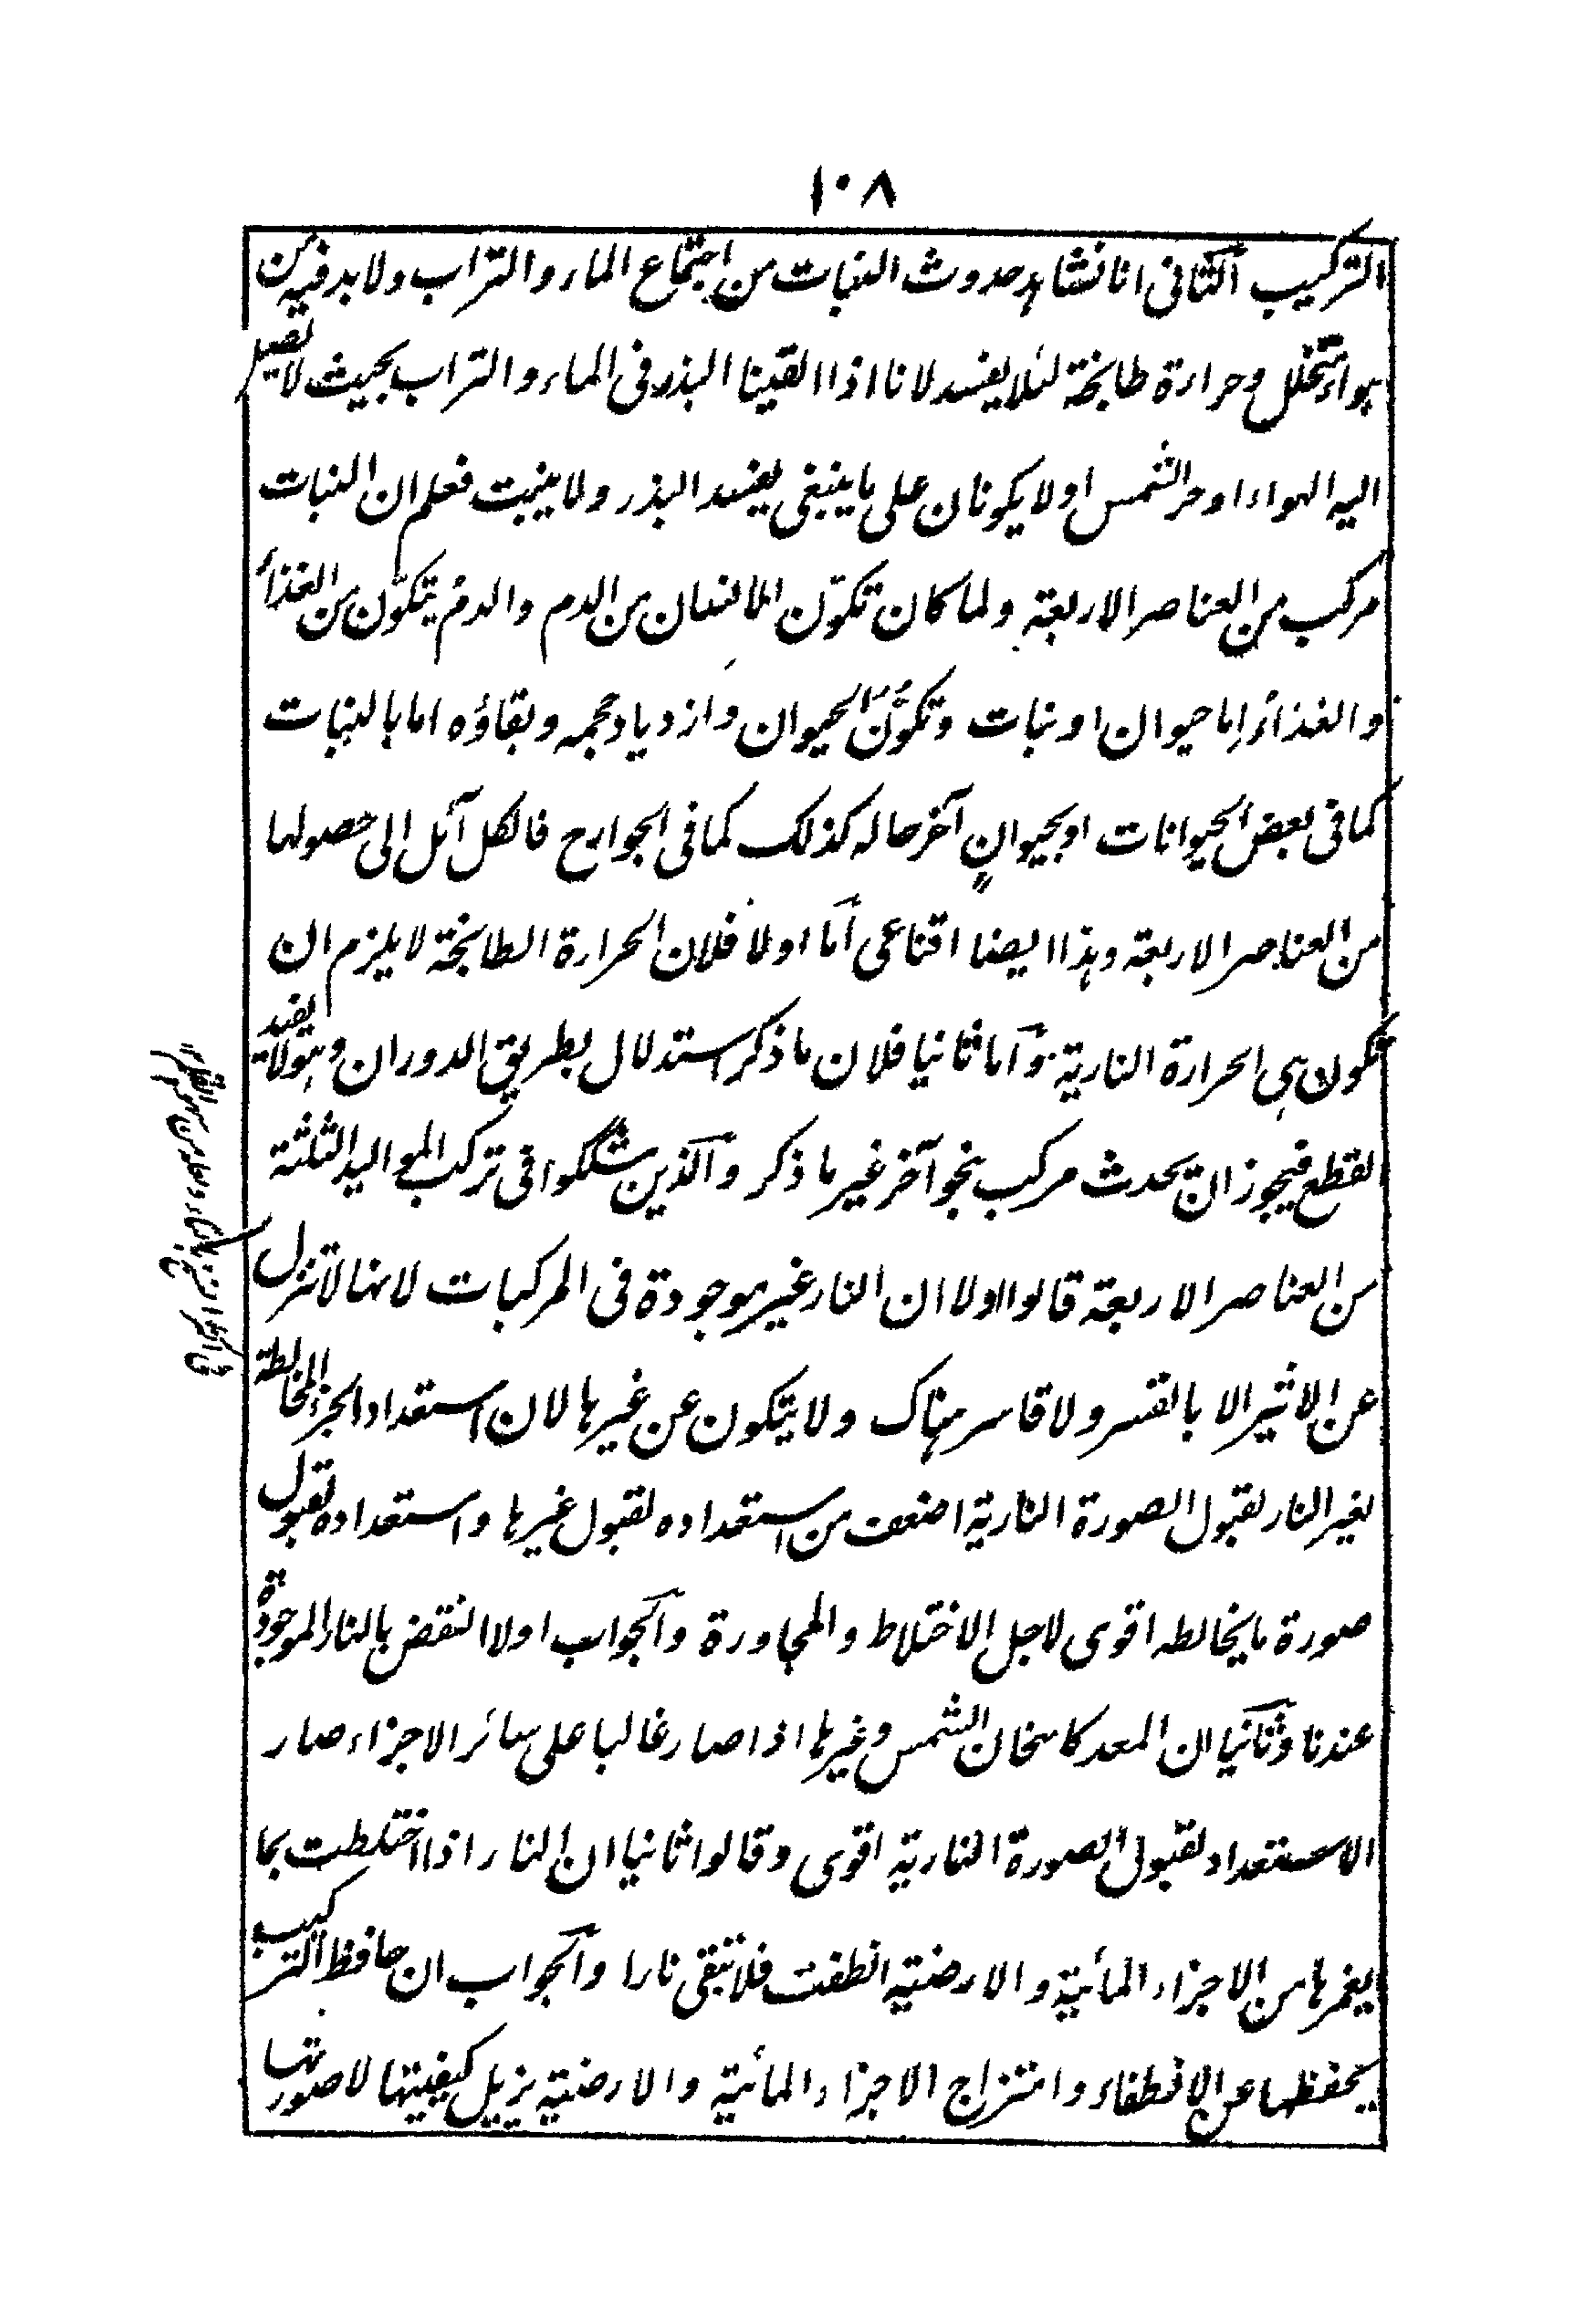 ١٠٨
التركيب الثانى انا نشاهد حدوث النبات من اجتماع الماء والتراب ولا بد فيه من
هواء يتخلل وحرارة طابخة لئلا يفسد لانا اذا القينا البذر فى الماء والتراب بحيث لا يصيل
اليه الهواء او حر الشمس او لا يكونان على ما ينبغى يفسد البذر ولا ينبت فعلم ان النبات
مركب من العناصر الاربعة ولما كان تكوّن الانسان من الدم والدم يتكوّن من الغذاء
والغذاء اما حيوان او نبات وتكوّن الحيوان وازدياد حجمه وبقاؤه اما بالنبات
كما فى بعض الحيوانات او بحيوانٍ آخر حاله كذلك كما فى الجوارح فالكل آئل الى حصولها
من العناصر الاربعة وهذا ايضا اقناعى اما اولا فلان الحرارة الطابخة لا يلزم ان
تكون هى الحرارة النارية واما ثانيا فلان ما ذكر استدلال بطريق الدوران وهو لا يفيد
القطع فيجوز ان يحدث مركب بنحو آخر غير ما ذكر والذين شككوا فى تركب المواليد الثلثة
من العناصر الاربعة قالوا اولا ان النار غير موجودة فى المركبات لانها لا تنزل
عن الاثير الا بالقسر ولا قاسر هناك ولا يتكون عن غيرها لان استعداد الجزء المخالطة
لغير النار لقبول الصورة النارية اضعف من استعداده لقبول غيرها واستعداده لقبول
صورة ما يخالطه اقوى لاجل الاختلاط والمجاورة والجواب اولا النقض بالنار الموجودة
عندنا وثانيا ان المعد كاسخان الشمس وغيرها اذا صار غالبا على سائر الاجزاء صار
الاستعداد لقبول الصورة النارية اقوى وقالوا ثانيا ان النار اذا اختلطت بما
يغمرها من الاجزاء المائية والارضية انطفت فلا تبقى نارا والجواب ان حافظ التركيب
يحفظها عن الانطفاء وامتزاج الاجزاء المائية والارضية يزيل كيفيتها لا صورتها